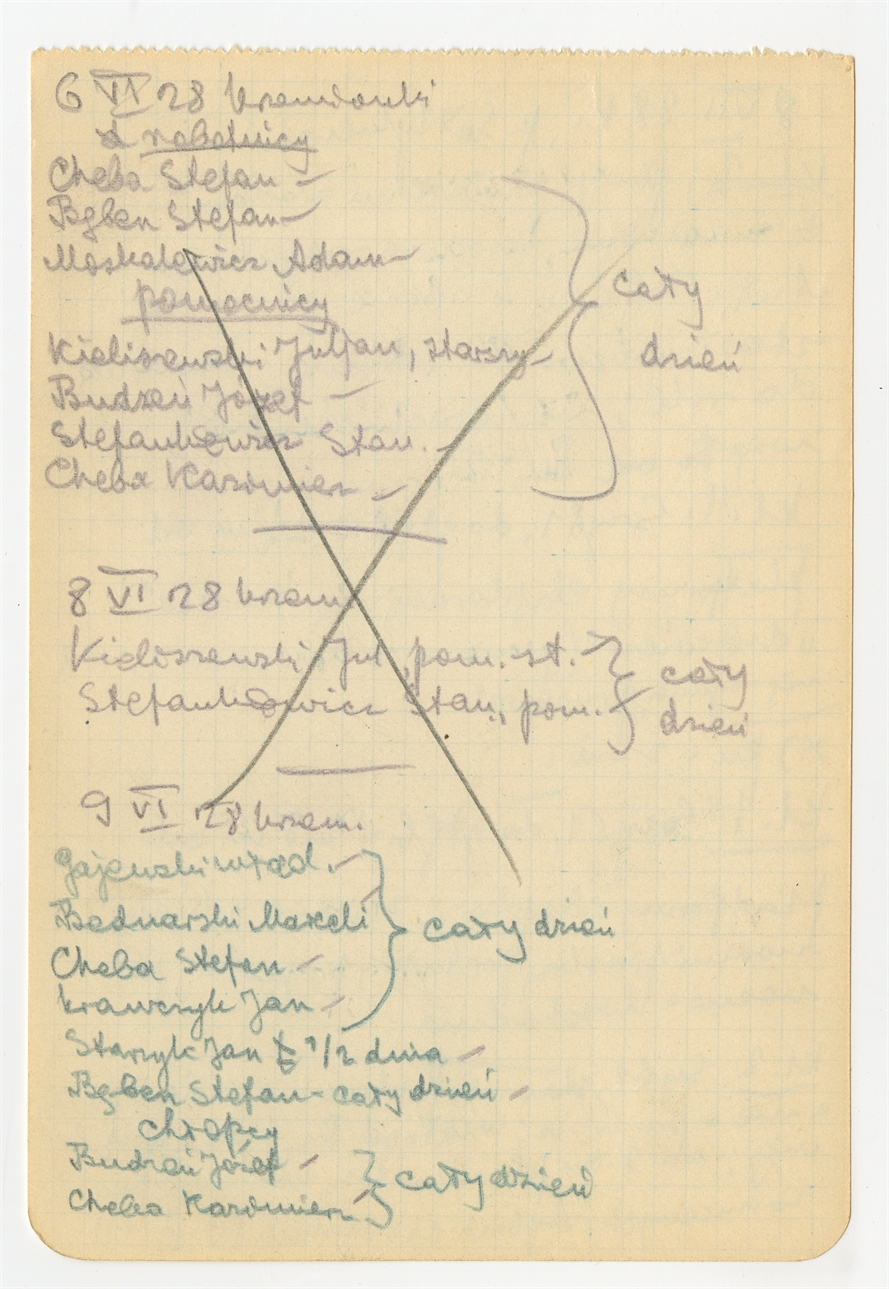 6 VI 28 krzemionki
robotnicy
Cheba Stefan –
Bęben Stefan –
Moskalewicz Adam –
pomocnicy
Kieliszewski Juljan, starszy –
Budzeń Józef –
Stefankowicz Stan. –
Cheba Kazimierz –
cały
dzień
8 VI 28 krzem.
Kieliszewski Jul. pom. st.
Stefankowicz Stan., pom.
cały
dzień
9 VI 28 krzem.
Gajewski Wład. –
Bednarski Marceli –
Cheba Stefan –
Krawczyk Jan –
cały dzień
Starzyk Jan 1/2 dnia –
Bęben Stefan - cały dzień –
chłopcy
Budzeń Józef –
Cheba Kazimierz –
cały dzień